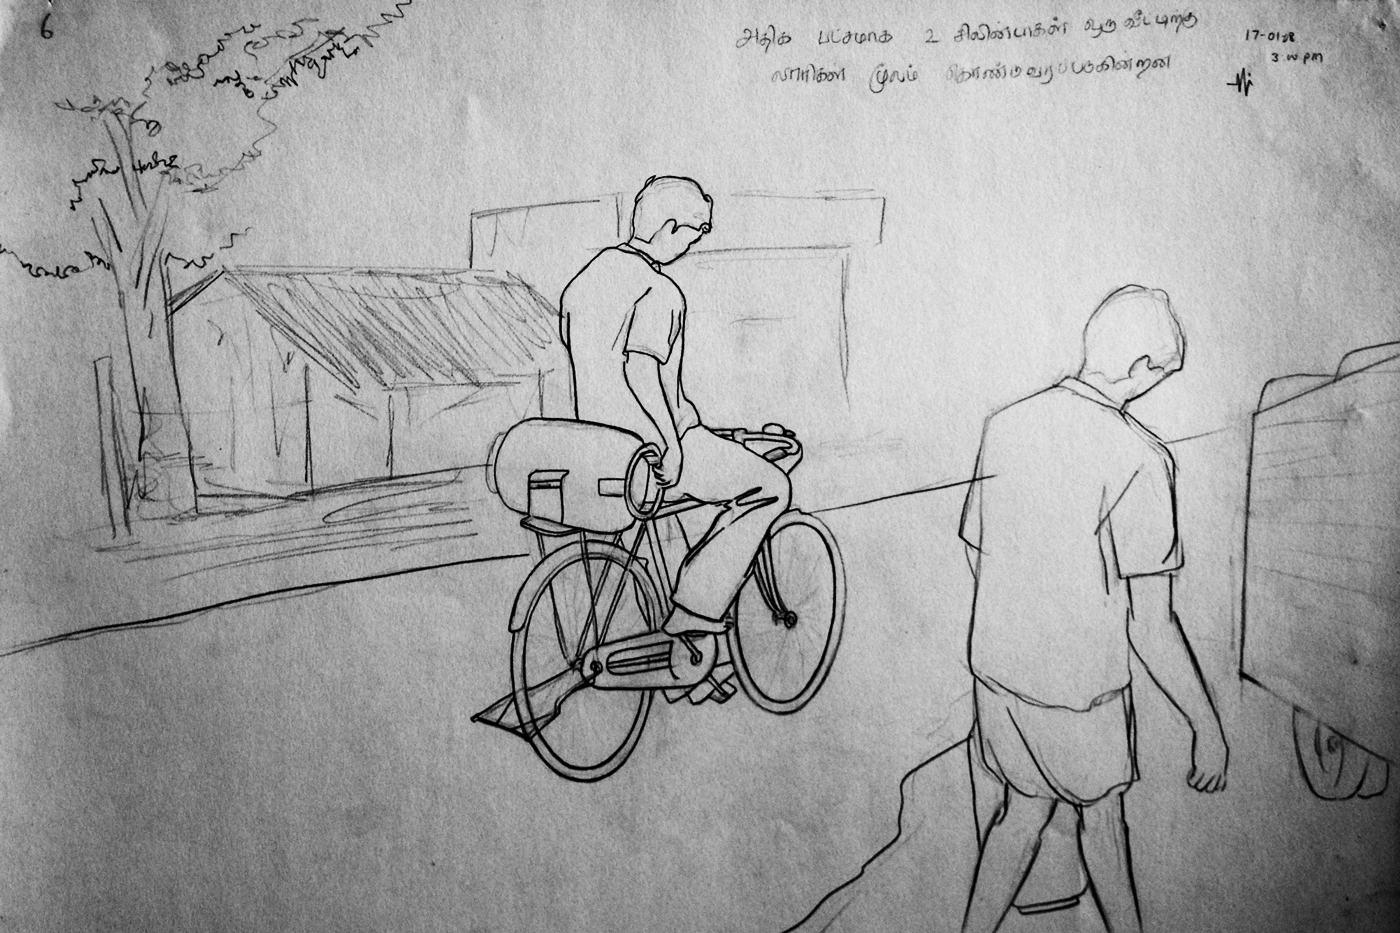 6
அதிக பட்சமாக 2 சிலின்டர்கள் ஒரு வீட்டிற்கு
லாரிகள் மூலம் கொண்டுவரப்படுகின்றன
17-01-18
3.00 pm